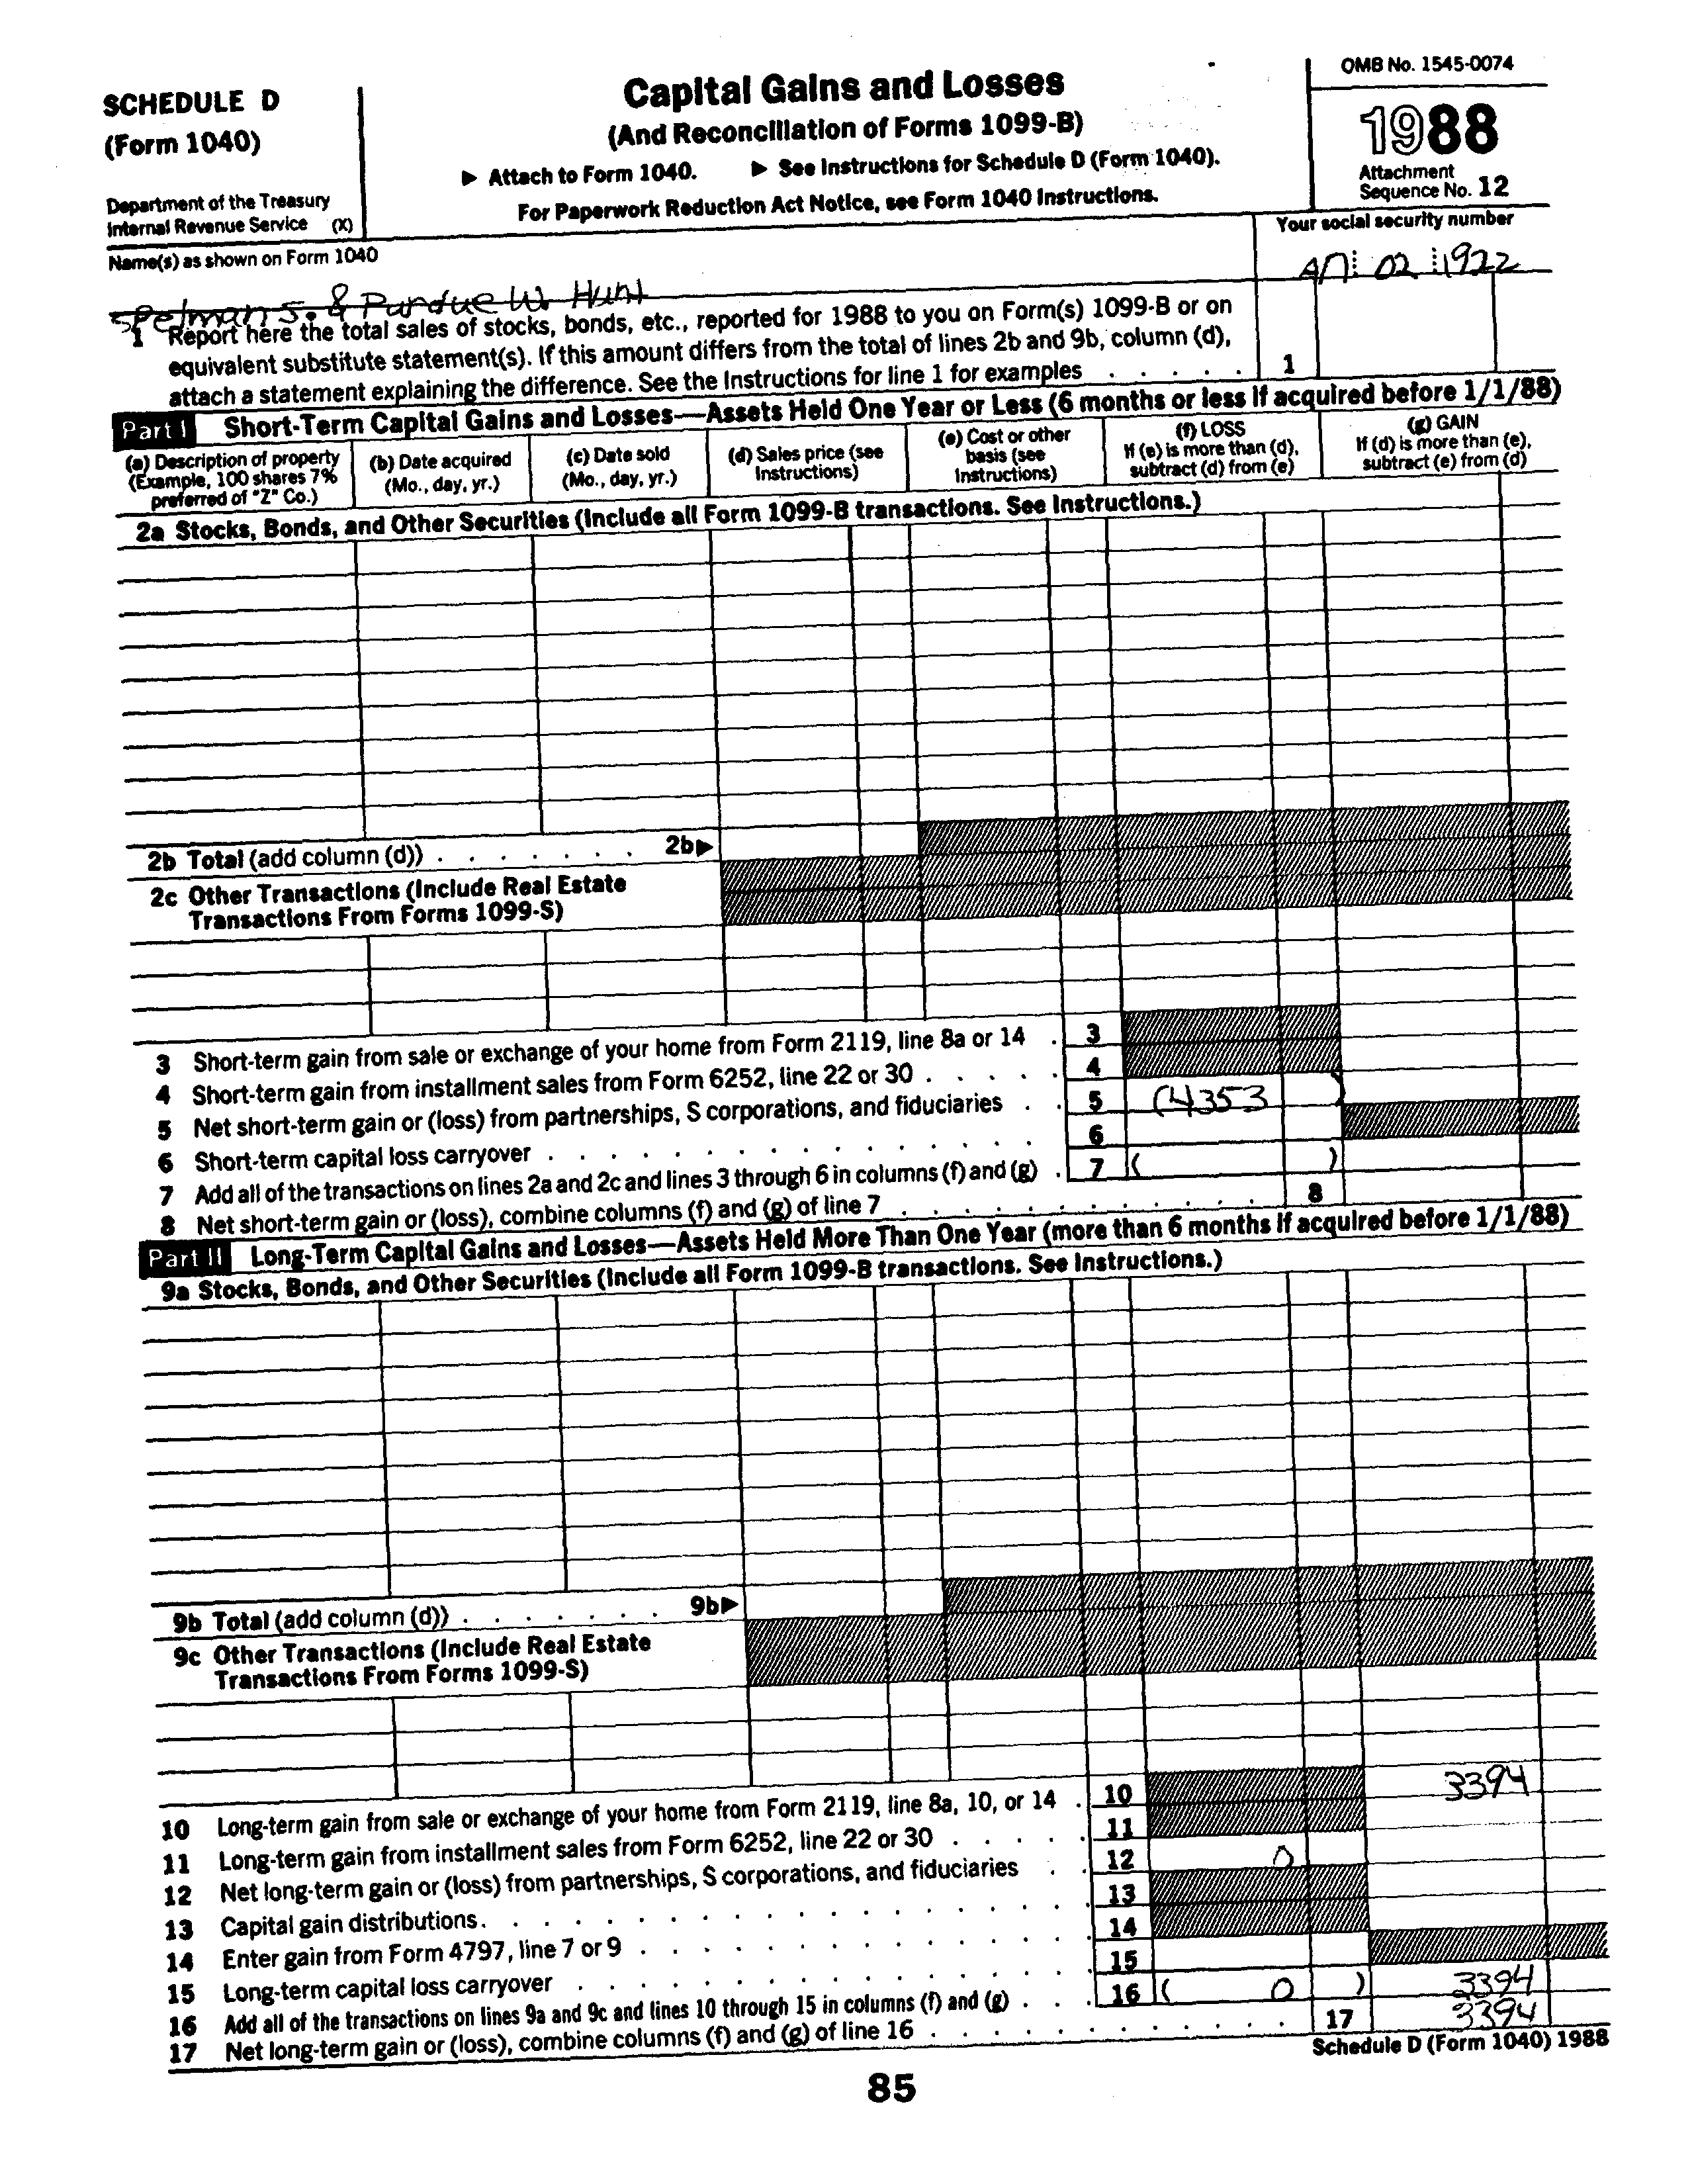 SCHEDULE D
(Form 1040)
Department of the Treasury
Internal Revenue Service (X)
Capital Gains and Losses
(And Reconciliation of Forms 1099-B)
▶ Attach to Form 1040. ▶ See Instructions for Schedule D (Form 1040).
For Paperwork Reduction Act Notice, see Form 1040 Instructions.
OMB No. 1545-0074
1988
Attachment
Sequence No. 12
Name(s) as shown on Form 1040
Your social security number
Spelman S. & Purdue W. Hunt
02 1922
1 Report here the total sales of stocks, bonds, etc., reported for 1988 to you on Form(s) 1099-B or on
equivalent substitute statement(s). If this amount differs from the total of lines 2b and 9b, column (d),
attach a statement explaining the difference. See the Instructions for line 1 for examples . . . . . 1
Part I Short-Term Capital Gains and Losses—Assets Held One Year or Less (6 months or less if acquired before 1/1/88)
(a) Description of property
(Example, 100 shares 7%
preferred of "Z" Co.)
(b) Date acquired
(Mo., day, yr.)
(c) Date sold
(Mo., day, yr.)
(d) Sales price (see
Instructions)
(e) Cost or other
basis (see
Instructions)
(f) LOSS
If (e) is more than (d),
subtract (d) from (e)
(g) GAIN
If (d) is more than (e),
subtract (e) from (d)
2a Stocks, Bonds, and Other Securities (Include all Form 1099-B transactions. See Instructions.)
2b Total (add column (d)) . . . . . . . 2b▶
2c Other Transactions (Include Real Estate
Transactions From Forms 1099-S)
3 Short-term gain from sale or exchange of your home from Form 2119, line 8a or 14 . 3
4 Short-term gain from installment sales from Form 6252, line 22 or 30 . . . . . 4
5 Net short-term gain or (loss) from partnerships, S corporations, and fiduciaries . . 5 (4353 )
6 Short-term capital loss carryover . . . . . . . . . . . . . . . . 6
7 Add all of the transactions on lines 2a and 2c and lines 3 through 6 in columns (f) and (g) . 7 ( )
8 Net short-term gain or (loss), combine columns (f) and (g) of line 7 . . . . . . . . . . . . 8
Part II Long-Term Capital Gains and Losses—Assets Held More Than One Year (more than 6 months if acquired before 1/1/88)
9a Stocks, Bonds, and Other Securities (Include all Form 1099-B transactions. See Instructions.)
9b Total (add column (d)) . . . . . . . 9b▶
9c Other Transactions (Include Real Estate
Transactions From Forms 1099-S)
10 Long-term gain from sale or exchange of your home from Form 2119, line 8a, 10, or 14 . 10 3394
11 Long-term gain from installment sales from Form 6252, line 22 or 30 . . . . . 11
12 Net long-term gain or (loss) from partnerships, S corporations, and fiduciaries . . 12 0
13 Capital gain distributions. . . . . . . . . . . . . . . . . . . . 13
14 Enter gain from Form 4797, line 7 or 9 . . . . . . . . . . . . . . . 14
15 Long-term capital loss carryover . . . . . . . . . . . . . . . . . 15
16 Add all of the transactions on lines 9a and 9c and lines 10 through 15 in columns (f) and (g) . . . 16 ( 0 ) 3394
17 Net long-term gain or (loss), combine columns (f) and (g) of line 16 . . . . . . . . . . . . 17 3394
Schedule D (Form 1040) 1988
85